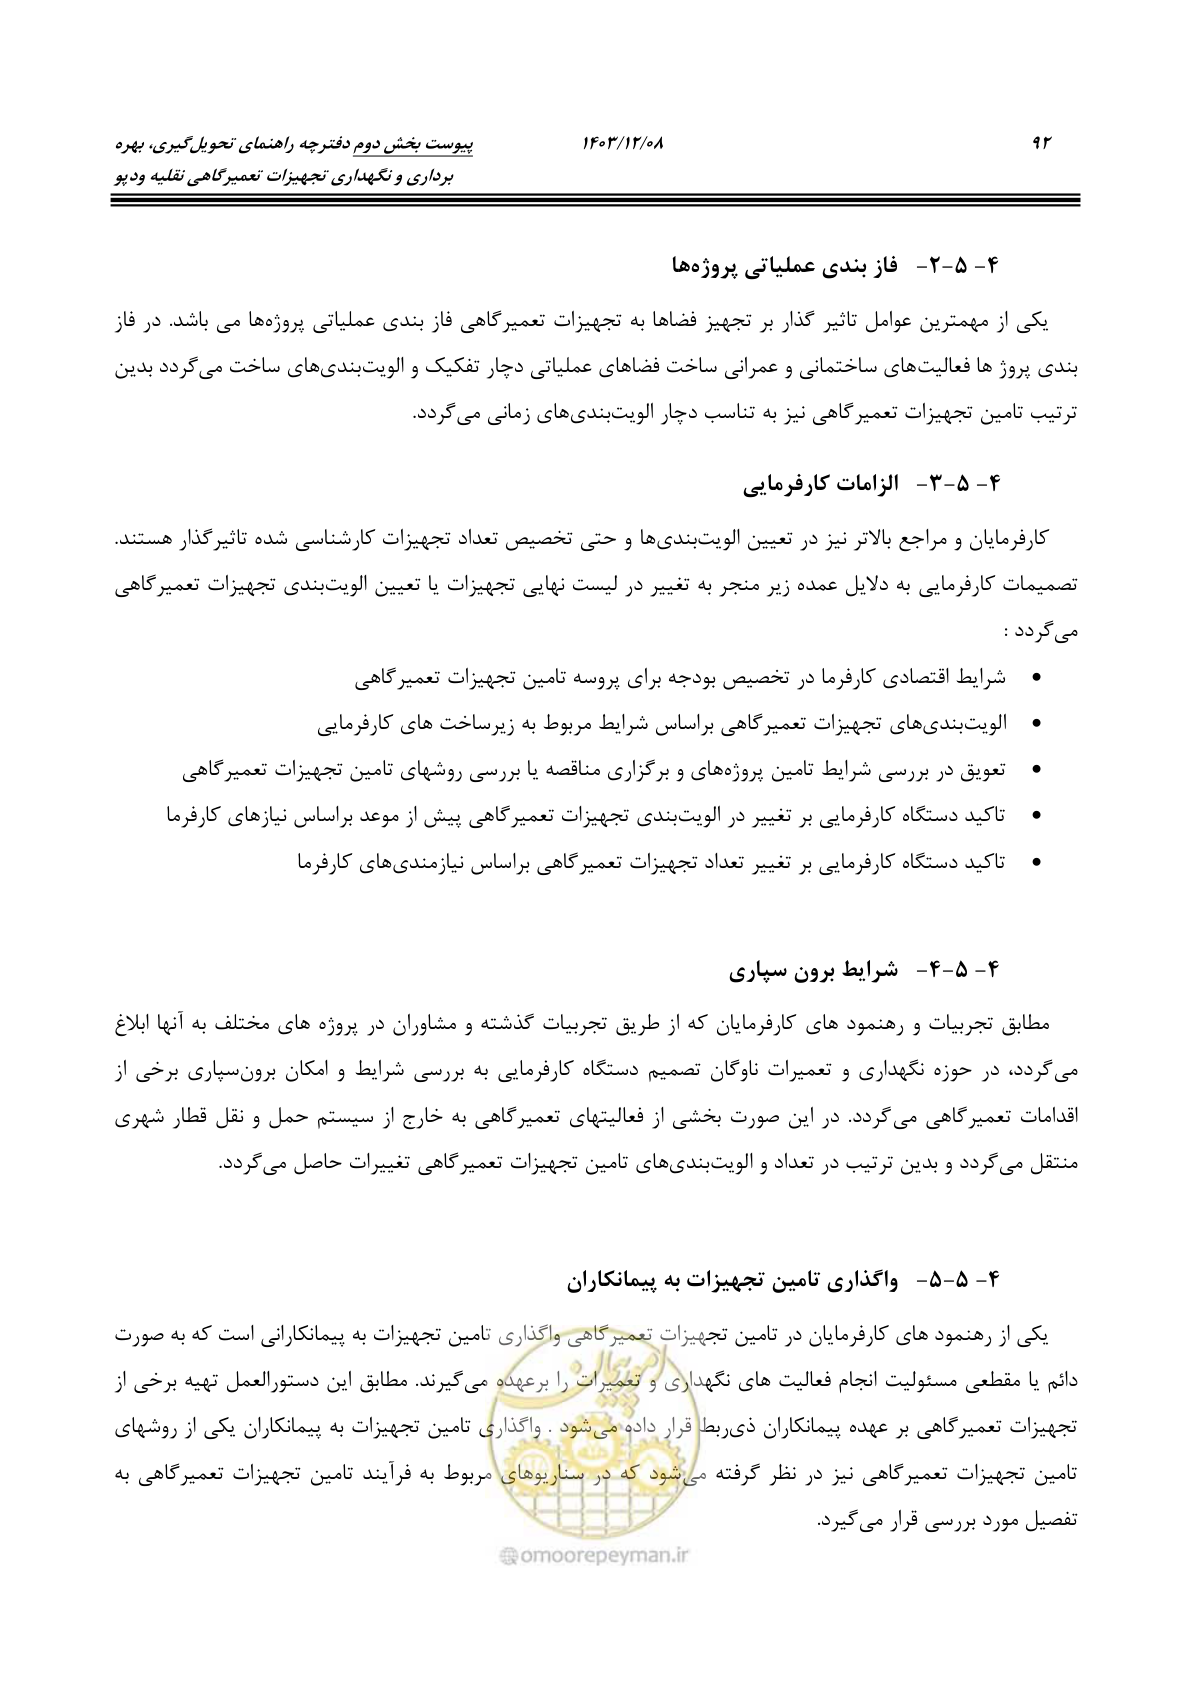 ۹۲ ۱۴۰۳/۱۲/۰۸ پیوست بخش دوم دفترچه راهنمای تحویل‌گیری، بهره
برداری و نگهداری تجهیزات تعمیرگاهی نقلیه ودپو
۴- ۵-۲- فاز بندی عملیاتی پروژه‌ها
یکی از مهمترین عوامل تاثیر گذار بر تجهیز فضاها به تجهیزات تعمیرگاهی فاز بندی عملیاتی پروژه‌ها می باشد. در فاز
بندی پروژ ها فعالیت‌های ساختمانی و عمرانی ساخت فضاهای عملیاتی دچار تفکیک و الویت‌بندی‌های ساخت می‌گردد بدین
ترتیب تامین تجهیزات تعمیرگاهی نیز به تناسب دچار الویت‌بندی‌های زمانی می‌گردد.
۴- ۵-۳- الزامات کارفرمایی
کارفرمایان و مراجع بالاتر نیز در تعیین الویت‌بندی‌ها و حتی تخصیص تعداد تجهیزات کارشناسی شده تاثیرگذار هستند.
تصمیمات کارفرمایی به دلایل عمده زیر منجر به تغییر در لیست نهایی تجهیزات یا تعیین الویت‌بندی تجهیزات تعمیرگاهی
می‌گردد :
• شرایط اقتصادی کارفرما در تخصیص بودجه برای پروسه تامین تجهیزات تعمیرگاهی
• الویت‌بندی‌های تجهیزات تعمیرگاهی براساس شرایط مربوط به زیرساخت های کارفرمایی
• تعویق در بررسی شرایط تامین پروژه‌های و برگزاری مناقصه یا بررسی روشهای تامین تجهیزات تعمیرگاهی
• تاکید دستگاه کارفرمایی بر تغییر در الویت‌بندی تجهیزات تعمیرگاهی پیش از موعد براساس نیازهای کارفرما
• تاکید دستگاه کارفرمایی بر تغییر تعداد تجهیزات تعمیرگاهی براساس نیازمندی‌های کارفرما
۴- ۵-۴- شرایط برون سپاری
مطابق تجربیات و رهنمود های کارفرمایان که از طریق تجربیات گذشته و مشاوران در پروژه های مختلف به آنها ابلاغ
می‌گردد، در حوزه نگهداری و تعمیرات ناوگان تصمیم دستگاه کارفرمایی به بررسی شرایط و امکان برون‌سپاری برخی از
اقدامات تعمیرگاهی می‌گردد. در این صورت بخشی از فعالیتهای تعمیرگاهی به خارج از سیستم حمل و نقل قطار شهری
منتقل می‌گردد و بدین ترتیب در تعداد و الویت‌بندی‌های تامین تجهیزات تعمیرگاهی تغییرات حاصل می‌گردد.
۴- ۵-۵- واگذاری تامین تجهیزات به پیمانکاران
یکی از رهنمود های کارفرمایان در تامین تجهیزات تعمیرگاهی واگذاری تامین تجهیزات به پیمانکارانی است که به صورت
دائم یا مقطعی مسئولیت انجام فعالیت های نگهداری و تعمیرات را برعهده می‌گیرند. مطابق این دستورالعمل تهیه برخی از
تجهیزات تعمیرگاهی بر عهده پیمانکاران ذی‌ربط قرار داده می‌شود . واگذاری تامین تجهیزات به پیمانکاران یکی از روشهای
تامین تجهیزات تعمیرگاهی نیز در نظر گرفته می‌شود که در سناریوهای مربوط به فرآیند تامین تجهیزات تعمیرگاهی به
تفصیل مورد بررسی قرار می‌گیرد.
امور پیمان
@omoorepeyman.ir